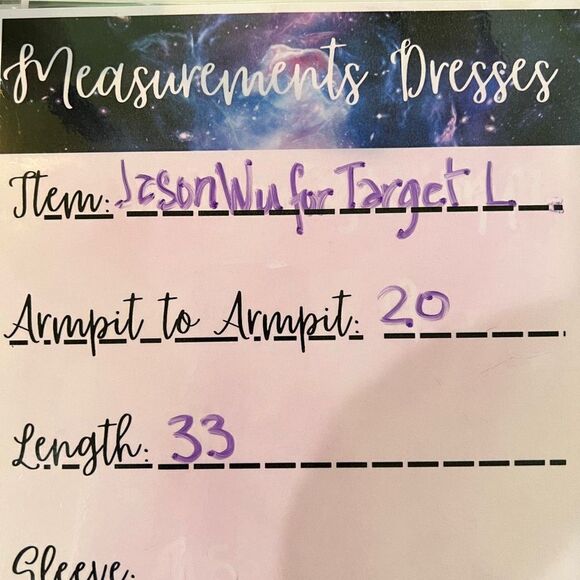 Measurements Dresses
Item: Jason Wu for Target L
Armpit to Armpit: 20
Length: 33
Sleeve: